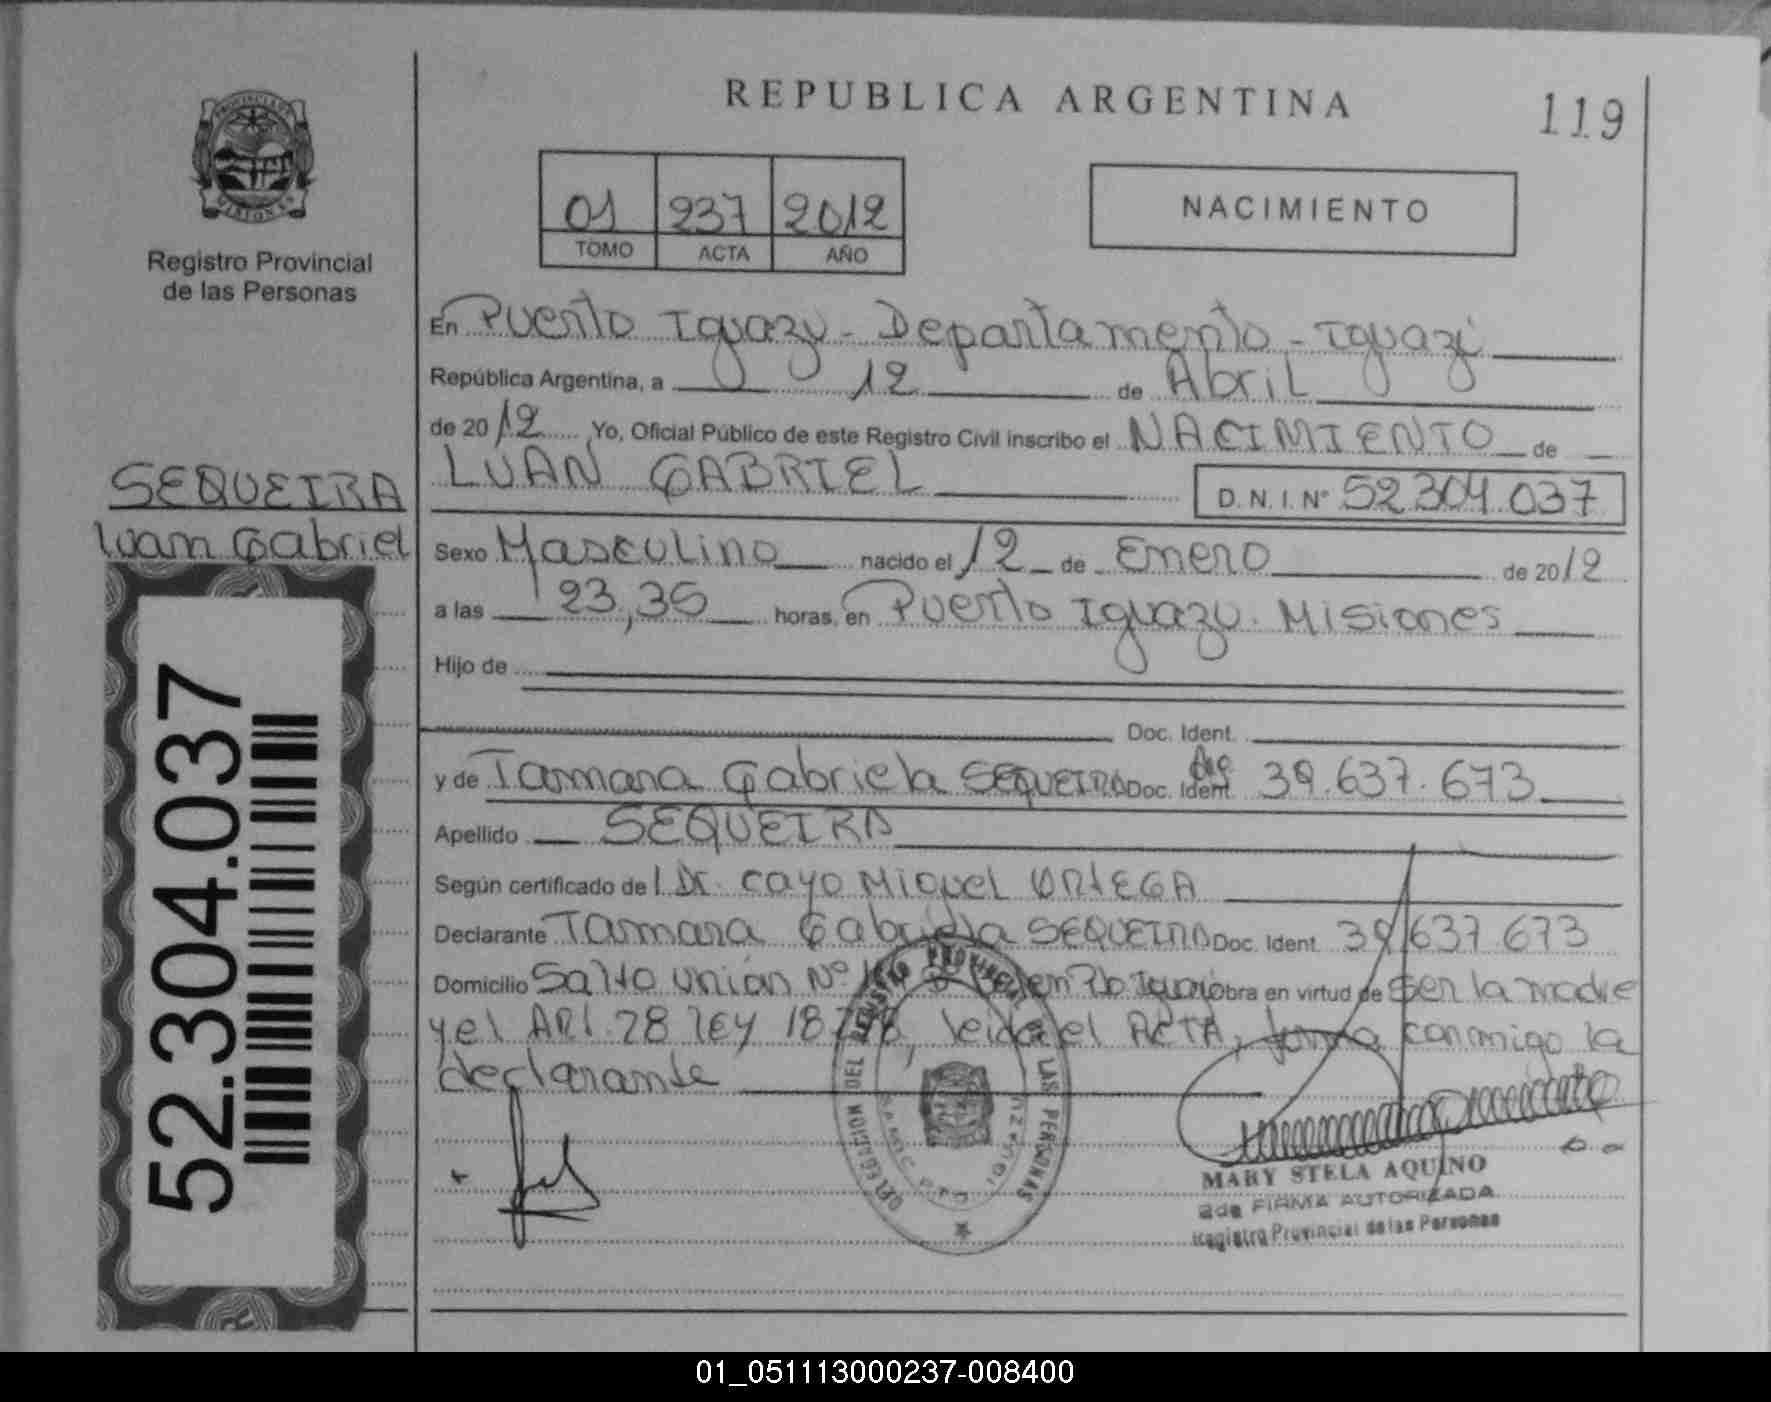 REPUBLICA ARGENTINA
119
PROVINCIA DE MISIONES
Registro Provincial
de las Personas
01 237 2012
TOMO ACTA AÑO
NACIMIENTO
En Puerto Iguazu - Departamento - Iguazú
República Argentina, a 12 de Abril
de 2012 Yo, Oficial Público de este Registro Civil inscribo el NACIMIENTO de
LUAN GABRIEL D.N.I.Nº 52.304.037
SEQUEIRA
Luan Gabriel
Sexo Masculino nacido el 12 de Enero de 2012
a las 23,35 horas, en Puerto Iguazu. Misiones
Hijo de
Doc. Ident.
y de Tamara Gabriela SEQUEIRA Doc. Ident. 39.637.673
Apellido SEQUEIRA
Según certificado del Dr. Cayo Miguel ORTEGA
Declarante Tamara Gabriela SEQUEIRA Doc. Ident. 39.637.673
Domicilio Salto Unión Nº Obra en virtud de Ser la madre
y el ART. 28 LEY 18248, leida el ACTA, firma conmigo la
declarante
52.304.037
DELEGACION DEL REGISTRO PROVINCIAL DE LAS PERSONAS
MARY STELA AQUINO
2da FIRMA AUTORIZADA
Registro Provincial de las Personas
01_051113000237-008400